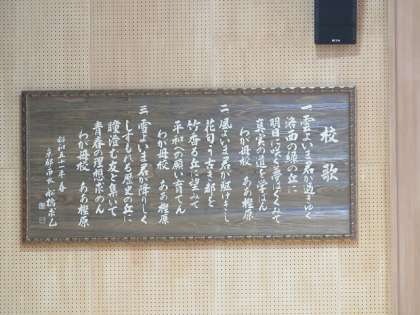 校歌
一 雲よいま君が過ぎゆく
洛西の緑の丘に
明日に咲く夢はぐくみて
真実の道を学ばん
わが母校 ああ樫原
二 風よいま君が駈けきし
花匂う古き都を
竹香る丘に望みて
平和への願い育てん
わが母校 ああ樫原
三 雪よいま君が降りしく
しずもれる歴史の丘に
瞳澄む友と集いて
青春の理想求めん
わが母校 ああ樫原
昭和五十一年春